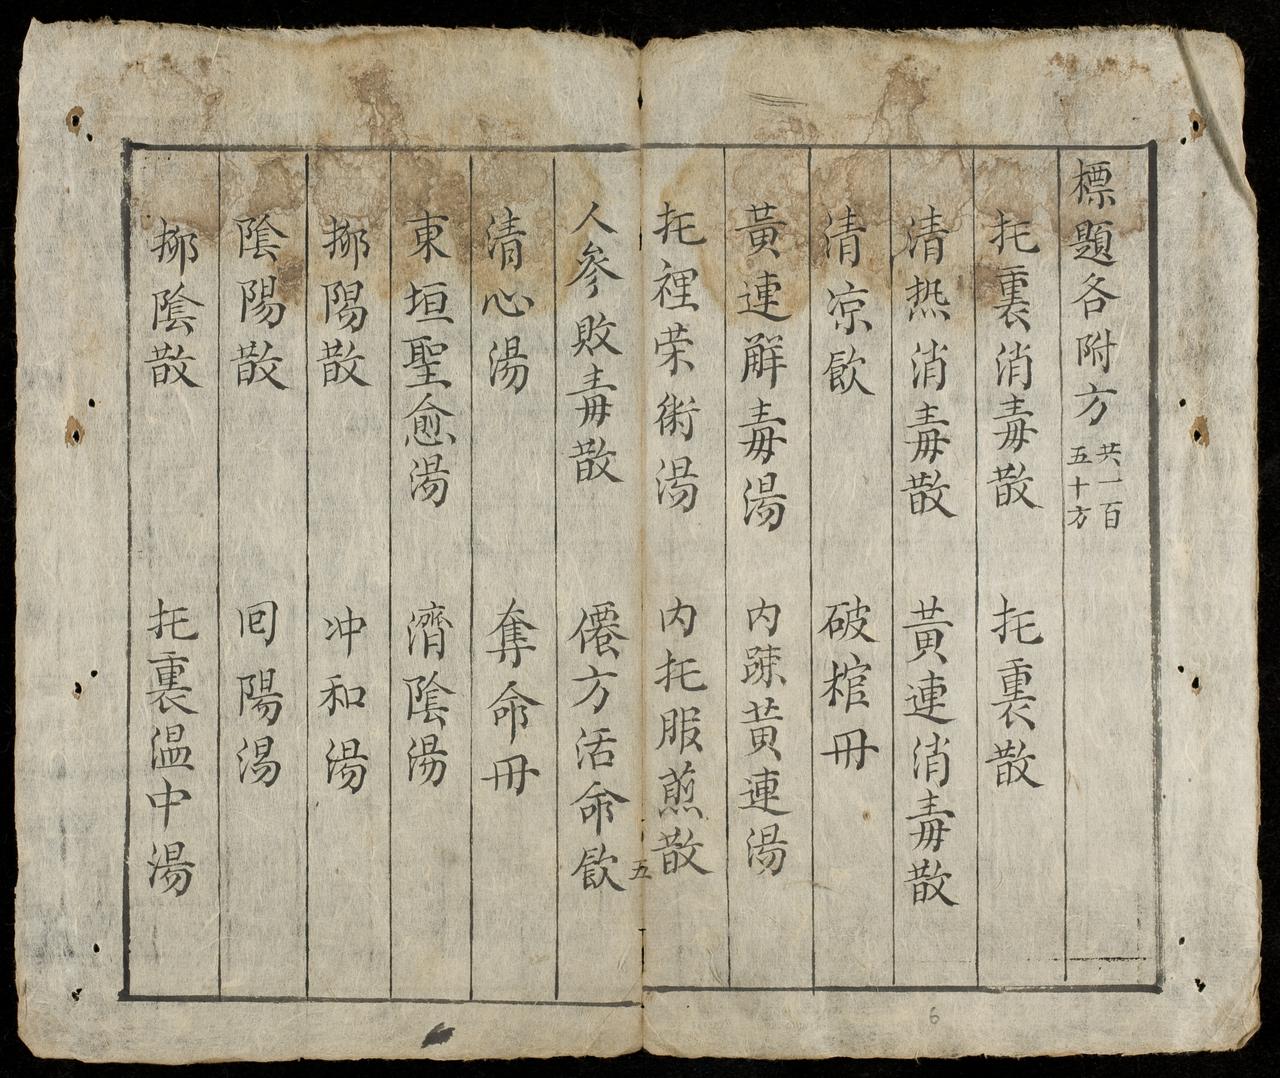 標題各附方 共一百五十方
托裏消毒散 托裏散
清热消毒散 黃連消毒散
清凉飮 破棺冊
黃連解毒湯 内踈黃連湯
托裡荣術湯 内托服煎散
五
人參敗毒散 僊方活命飮
清心湯 奪命冊
東垣聖愈湯 濟陰湯
抑陽散 冲和湯
陰陽散 囘陽湯
抑陰散 托裏温中湯
6